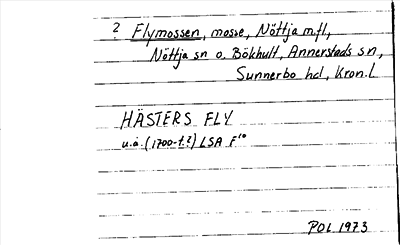 ? Flymossen, mosse, Nöttja m.fl,
Nöttja sn o. Bökhult, Annerstads sn,
Sunnerbo hd, Kron. L
HÄSTERS FLY
u.å. (1700-t.?) LSA F¹⁰
POL 1973